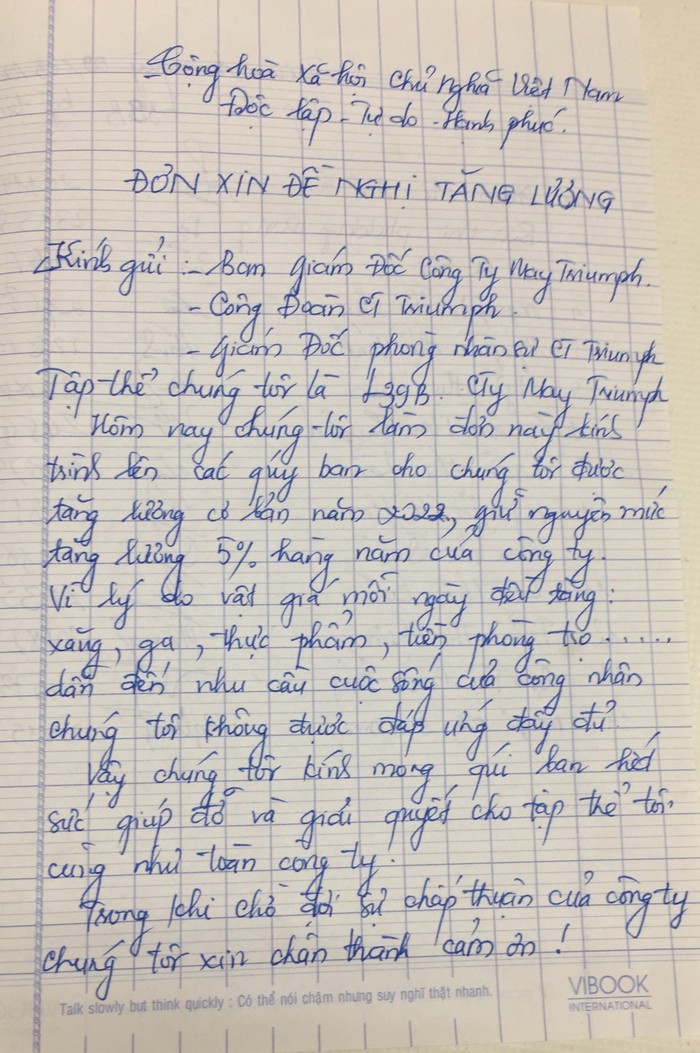 Cộng hoà xã hội chủ nghĩa Việt Nam
Độc lập - Tự do - Hạnh phúc.
ĐƠN XIN ĐỀ NGHỊ TĂNG LƯƠNG
Kính gửi : - Ban Giám Đốc Công Ty May Triumph.
- Công Đoàn CT Triumph.
- Giám Đốc phòng nhân sự CT Triumph
Tập thể chúng tôi là L39B. CTy May Triumph
Hôm nay chúng tôi làm đơn này kính
trình lên các qúy ban cho chúng tôi được
tăng lương cơ bản năm 2022, giữ nguyên mức
tăng lương 5% hàng năm của công ty.
Vì lý do vật giá mỗi ngày đều tăng:
xăng, ga, thực phẩm, tiền phòng trọ.....
dẫn đến nhu cầu cuộc sống của công nhân
chúng tôi không được đáp ứng đầy đủ.
Vậy chúng tôi kính mong quí ban hết
sức giúp đỡ và giải quyết cho tập thể tôi
cũng như toàn công ty.
Trong khi chờ đợi sự chấp thuận của công ty
chúng tôi xin chân thành cảm ơn!
Talk slowly but think quickly : Có thể nói chậm nhưng suy nghĩ thật nhanh.
VIBOOK
INTERNATIONAL